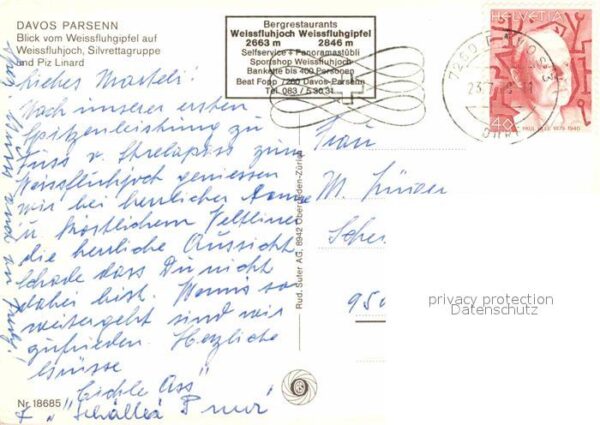 DAVOS PARSENN
Blick vom Weissfluhgipfel auf
Weissfluhjoch, Silvrettagruppe
und Piz Linard
Bergrestaurants
Weissfluhjoch Weissfluhgipfel
2663 m 2846 m
Selfservice + Panoramastübli
Sportshop Weissfluhjoch
Bankette bis 400 Personen
Beat Fopp 7260 Davos-Parsenn
Tel. 083 / 5 30 31
HELVETIA
40
PAUL KLEE 1879-1940
Liebes Marteli!
Nach unserer ersten
Spitzenleistung zu
Fuss v. Strelapass zum
Weissfluhjoch geniessen
wir bei herrlicher Sonne
u. köstlichem Veltliner
die herrliche Aussicht
Schade dass Du nicht
dabei bist. Wenns so
weitergeht sind wir
zufrieden. Herzliche
Grüsse
Frau
M.
950
Rud. Suter AG, 8942 Oberrieden-Zürich
Nr. 18685
privacy protection
Datenschutz